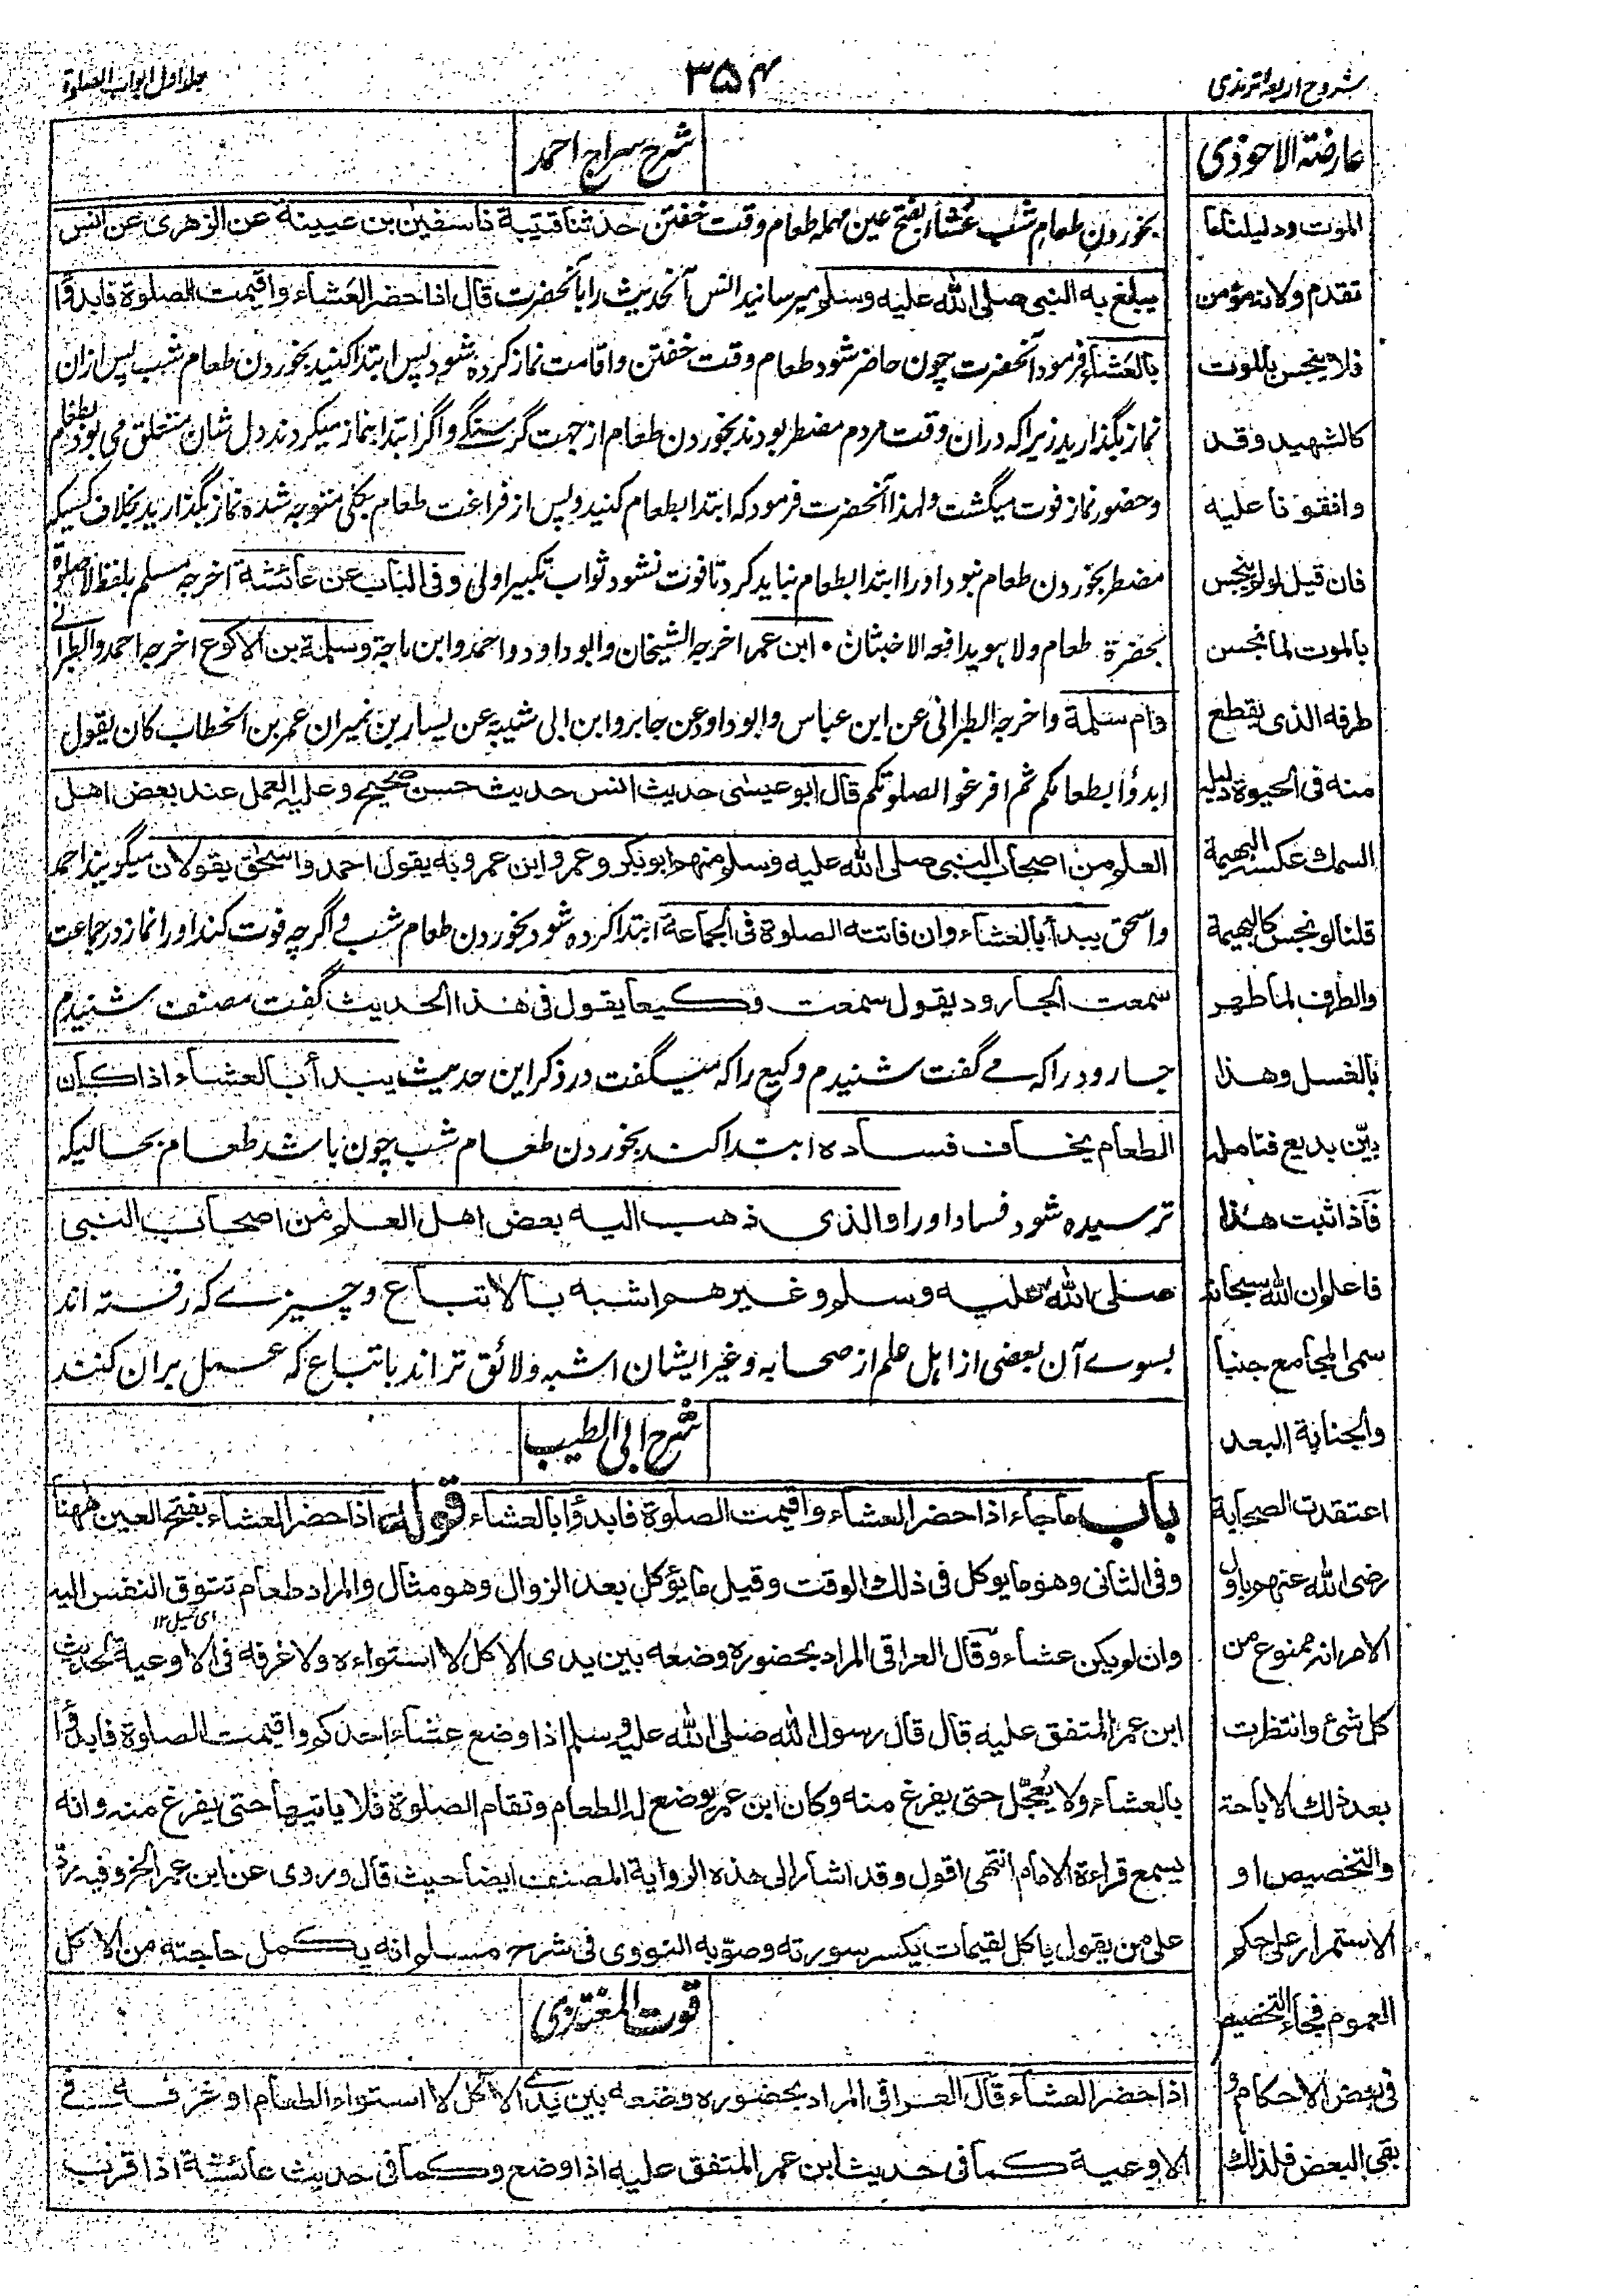 شروح اربعہ ترمذی
۳۵۴
جلد اول ابواب الصلوة
عارضة الاحوذی
الموت ودليلنا ما
تقدم ولانه مؤمن
فلا ينجس بالموت
كالشهيد وقد
وافقونا عليه
فان قيل لو لم ينجس
بالموت لما نجس
طرفه الذى يقطع
منه فى الحيوة دليله
السمك عكسه البهيمة
قلنا لو نجس كالبهيمة
والطرف لما طهر
بالغسل وهذا
بيّن بديع فتامله
فاذا ثبت هذا
فاعلم ان الله سبحانه
سمى المجامع جنبا
والجنابة البعد
اعتقدت الصحابة
رضى الله عنهم باول
الامر انه ممنوع من
كل شئ وانتظرت
بعد ذلك الاباحة
والتخصيص او
الاستمرار على حكم
العموم فجاء التخصيص
فى بعض الاحكام و
بقى البعض فلذلك
شرح سراج احمد
بخوردن طعام شب عشاء بفتح عین مهمله طعام وقت خفتن حدثنا قتيبة نا سفين بن عيينة عن الزهرى عن انس
يبلغ به النبى صلى الله عليه وسلم میرساند انس آنحدیث را بآنحضرت قال اذا حضر العشاء واقيمت الصلوة فابدؤا
بالعشاء فرمود آنحضرت چون حاضر شود طعام وقت خفتن و اقامت نماز کرده شود پس ابتدا کنید بخوردن طعام شب پس ازان
نماز بگذارید زیراکه دران وقت مردم مضطر بودند بخوردن طعام از جهت گرسنگے و اگر ابتدا بنماز میکردند دل شان متعلق می بود بطعام
و حضور نماز فوت میگشت و لهذا آنحضرت فرمود که ابتدا بطعام کنید و پس از فراغت طعام بکلی متوجه شده نماز بگذارید بخلاف کسیکه
مضطر بخوردن طعام نبود او را ابتدا بطعام نباید کرد تا فوت نشود ثواب تکبیر اولی وفى الباب عن عائشة اخرجه مسلم بلفظ لا صلوة
بحضرة طعام ولا هو يدافعه الاخبثان ۰ ابن عمر اخرجه الشيخان وابوداود واحمد وابن ماجة وسلمة بن الاكوع اخرجه احمد والطبرانے
وام سلمة واخرجه الطبرانى عن ابن عباس وابوداود عن جابر وابن ابى شيبة عن يسار بن نمير ان عمر بن الخطاب كان يقول
ابدؤا بطعامكم ثم افرغوا لصلوتكم قال ابو عيسى حديث انس حديث حسن صحيح وعليه العمل عند بعض اهل
العلم من اصحاب النبى صلى الله عليه وسلم منهم ابوبكر وعمر وابن عمر وبه يقول احمد واسحق يقولان میگویند احمد
واسحق يبدأ بالعشاء وان فاتته الصلوة فى الجماعة ابتدا کرده شود بخوردن طعام شب و اگرچه فوت کند او را نماز در جماعت
سمعت الجارود يقول سمعت وكيعا يقول فى هذا الحديث گفت مصنف شنیدم
جارود را که مے گفت شنیدم وکیع را که میگفت در ذکر این حدیث يبدأ بالعشاء اذا كان
الطعام يخاف فساده ابتدا کند بخوردن طعام شب چون باشد طعام بحالیکه
ترسیده شود فساد او را والذى ذهب اليه بعض اهل العلم من اصحاب النبى
صلى الله عليه وسلم وغيرهم اشبه بالاتباع و چیزے که رفته اند
بسوے آن بعضی از اهل علم از صحابه و غیر ایشان اشبه ولائق تر اند باتباع که عمل بران کنند
شرح ابى الطيب
باب ما جاء اذا حضر العشاء واقيمت الصلوة فابدؤا بالعشاء قوله اذا حضر العشاء بفتح العين ههنا
وفى الثانى وهو ما يوكل فى ذلك الوقت وقيل ما يؤكل بعد الزوال وهو مثال والمراد طعام تتوق النفس اليه
اى تميل ۱۲
وان لم يكن عشاء وقال العراقى المراد بحضوره وضعه بين يدى الاكل لا استواءه ولا غرفه فى الاوعية لحديث
ابن عمر المتفق عليه قال قال رسول الله صلى الله عليه وسلم اذا وضع عشاء احدكم واقيمت الصلوة فابدؤا
بالعشاء ولا يُعجّل حتى يفرغ منه وكان ابن عمر يوضع له الطعام وتقام الصلوة فلا ياتيها حتى يفرغ منه وانه
يسمع قراءة الامام انتهى اقول وقد اشار الى هذه الرواية المصنف ايضا حيث قال وروى عن ابن عمر الخ وفيه ردّ
على من يقول ياكل لقيمات يكسر سورته وصوّبه النووى فى شرح مسلم انه يكمل حاجته من الاكل
قوت المغتذى
اذا حضر العشاء قال العراقى المراد بحضوره وضعه بين يدے الاكل لا استواء الطعام او غرفه فے
الاوعية كما فى حديث ابن عمر المتفق عليه اذا وضع وكما فى حديث عائشة اذا قرب